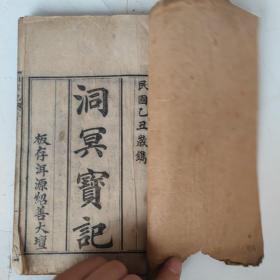 民國乙丑歲鐫
洞冥寶記
板存洱源紹善大壇